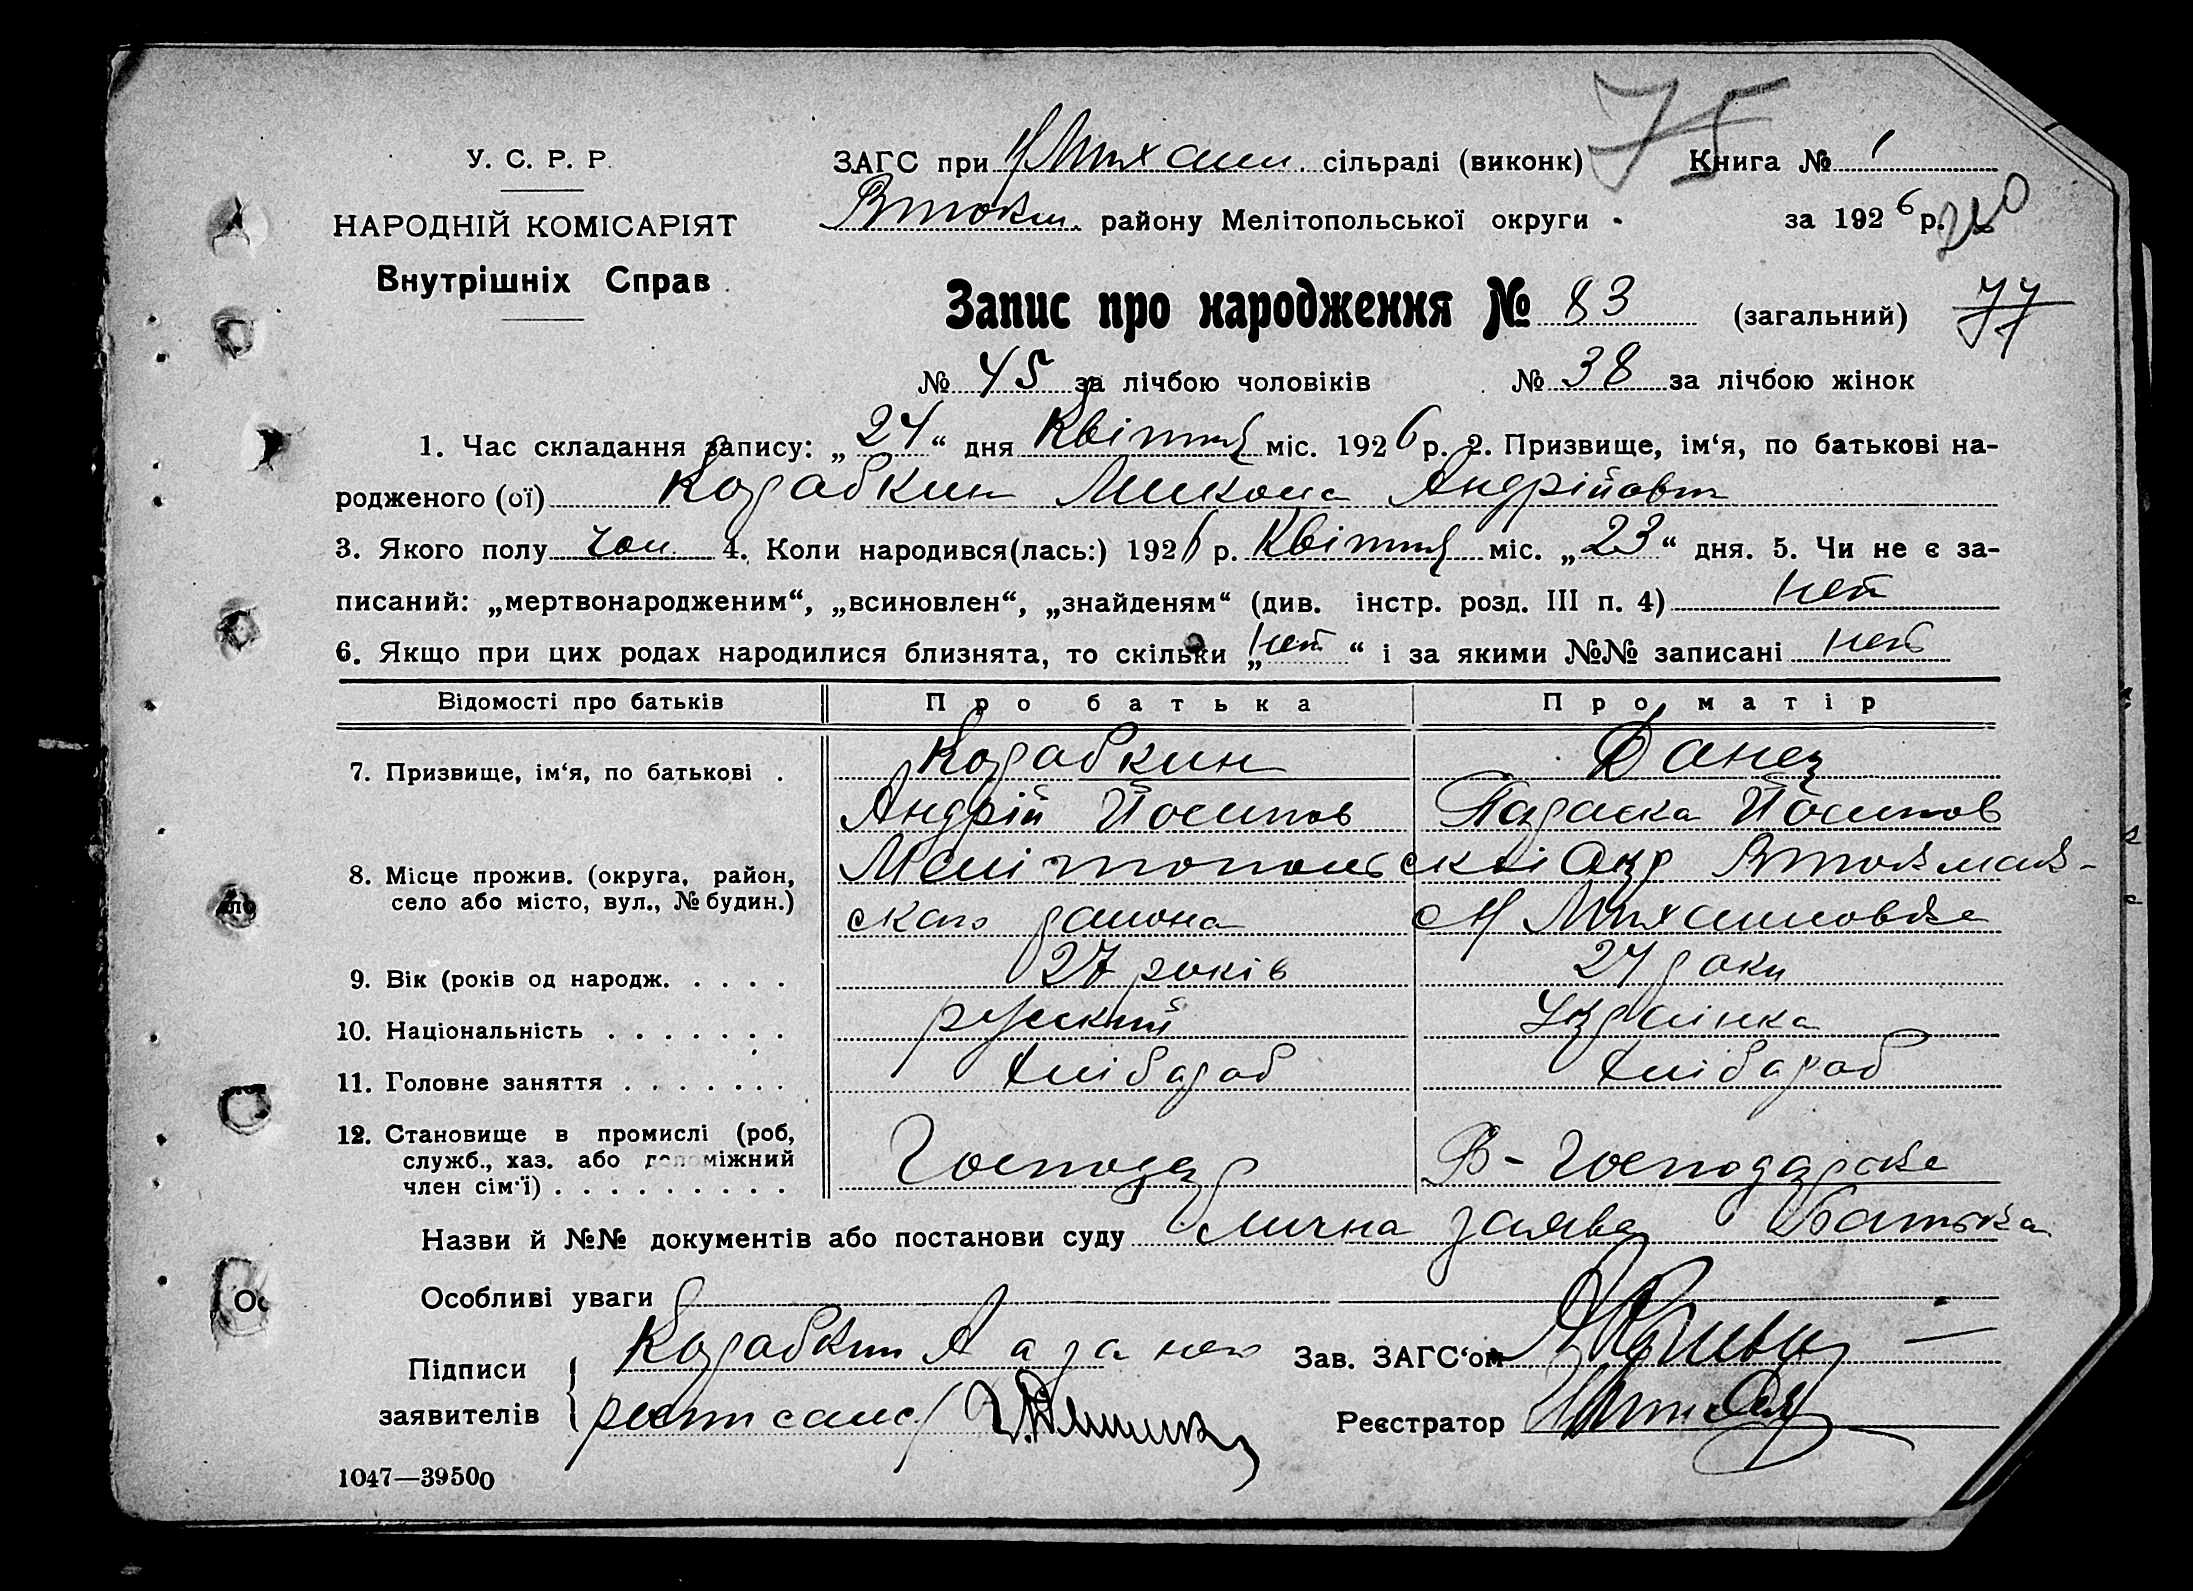 75
У. С. Р. Р.
ЗАГС при Н Михайл. сільраді (виконк) Книга № 1
НАРОДНІЙ КОМІСАРІЯТ
Втокм. району Мелітопольської округи за 1926 р.
Внутрішніх Справ
Запис про народження № 83 (загальний) 77
№ 45 за лічбою чоловіків № 38 за лічбою жінок
1. Час складання запису: „24“ дня Квітня міс. 1926 р. 2. Призвище, ім‘я, по батькові на-
родженого (ої) Карабкин Микола Андрійович
3. Якого полу чол. 4. Коли народився(лась:) 1926 р. Квітня міс. „23“ дня. 5. Чи не є за-
писаний: „мертвонародженим“, „всиновлен“, „знайденям“ (див. інстр. розд. III п. 4) нет
6. Якщо при цих родах народилися близнята, то скільки „нет“ і за якими №№ записані нет
Відомості про батьків Про батька Про матір
7. Призвище, ім‘я, по батькові . Карабкин Данец
Андрій Йосипов Параска Йосипов
8. Місце прожив. (округа, район, Мелітопольскйі Окр Втокмак-
село або місто, вул., № будин.) ского района Н Михайловка
9. Вік (років од народж. . . . . 27 років 24 роки
10. Національність . . . . . . . русский Українка
11. Головне заняття . . . . . . . Хлібароб Хлібароб
12. Становище в промислі (роб,
служб., хаз. або допоміжний Господар В-Господарке
член сім‘ї) . . . . . . . . .
Назви й №№ документів або постанови суду Лична заява Батька
Особливі уваги
Підписи Карабкин А а за него Зав. ЗАГС‘ом
заявителів Реєстратор
1047—39500